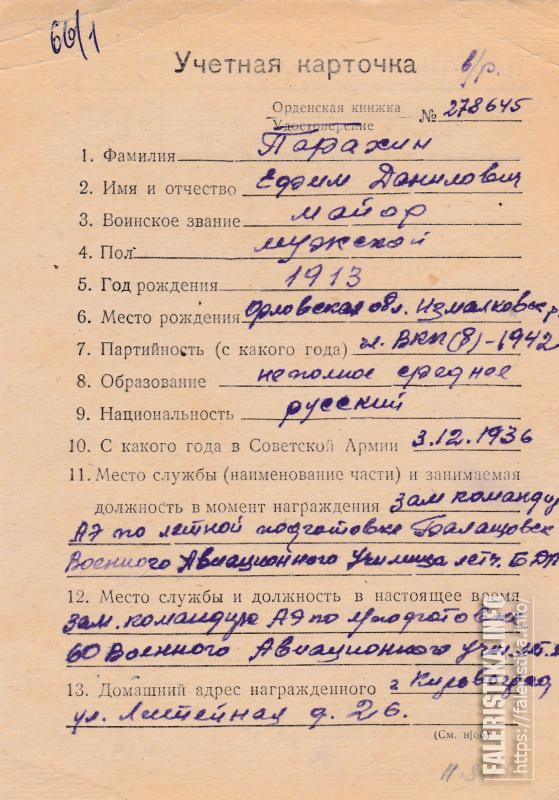 66/1
Учетная карточка
в/р.
Орденская книжка
Удостоверение
№ 278645
1. Фамилия Парахин
2. Имя и отчество Ефим Данилович
3. Воинское звание майор
4. Пол мужской
5. Год рождения 1913
6. Место рождения Орловская обл. Измалковск р
7. Партийность (с какого года) чл. ВКП(б)-1942
8. Образование неполное среднее
9. Национальность русский
10. С какого года в Советской Армии 3.12.1936
11. Место службы (наименование части) и занимаемая
должность в момент награждения зам команди
АЭ по летной подготовке Балашовск
Военного Авиационного Училища летч. Б.ДА
12. Место службы и должность в настоящее время
зам. командира АЭ по л/подготовке
60 Военного Авиационного Учил.
13. Домашний адрес награжденного г Кировоград
ул. Литейная д. 26.
(См. н/об)
FALERISTIKA.INFO
https://faleristika.info/